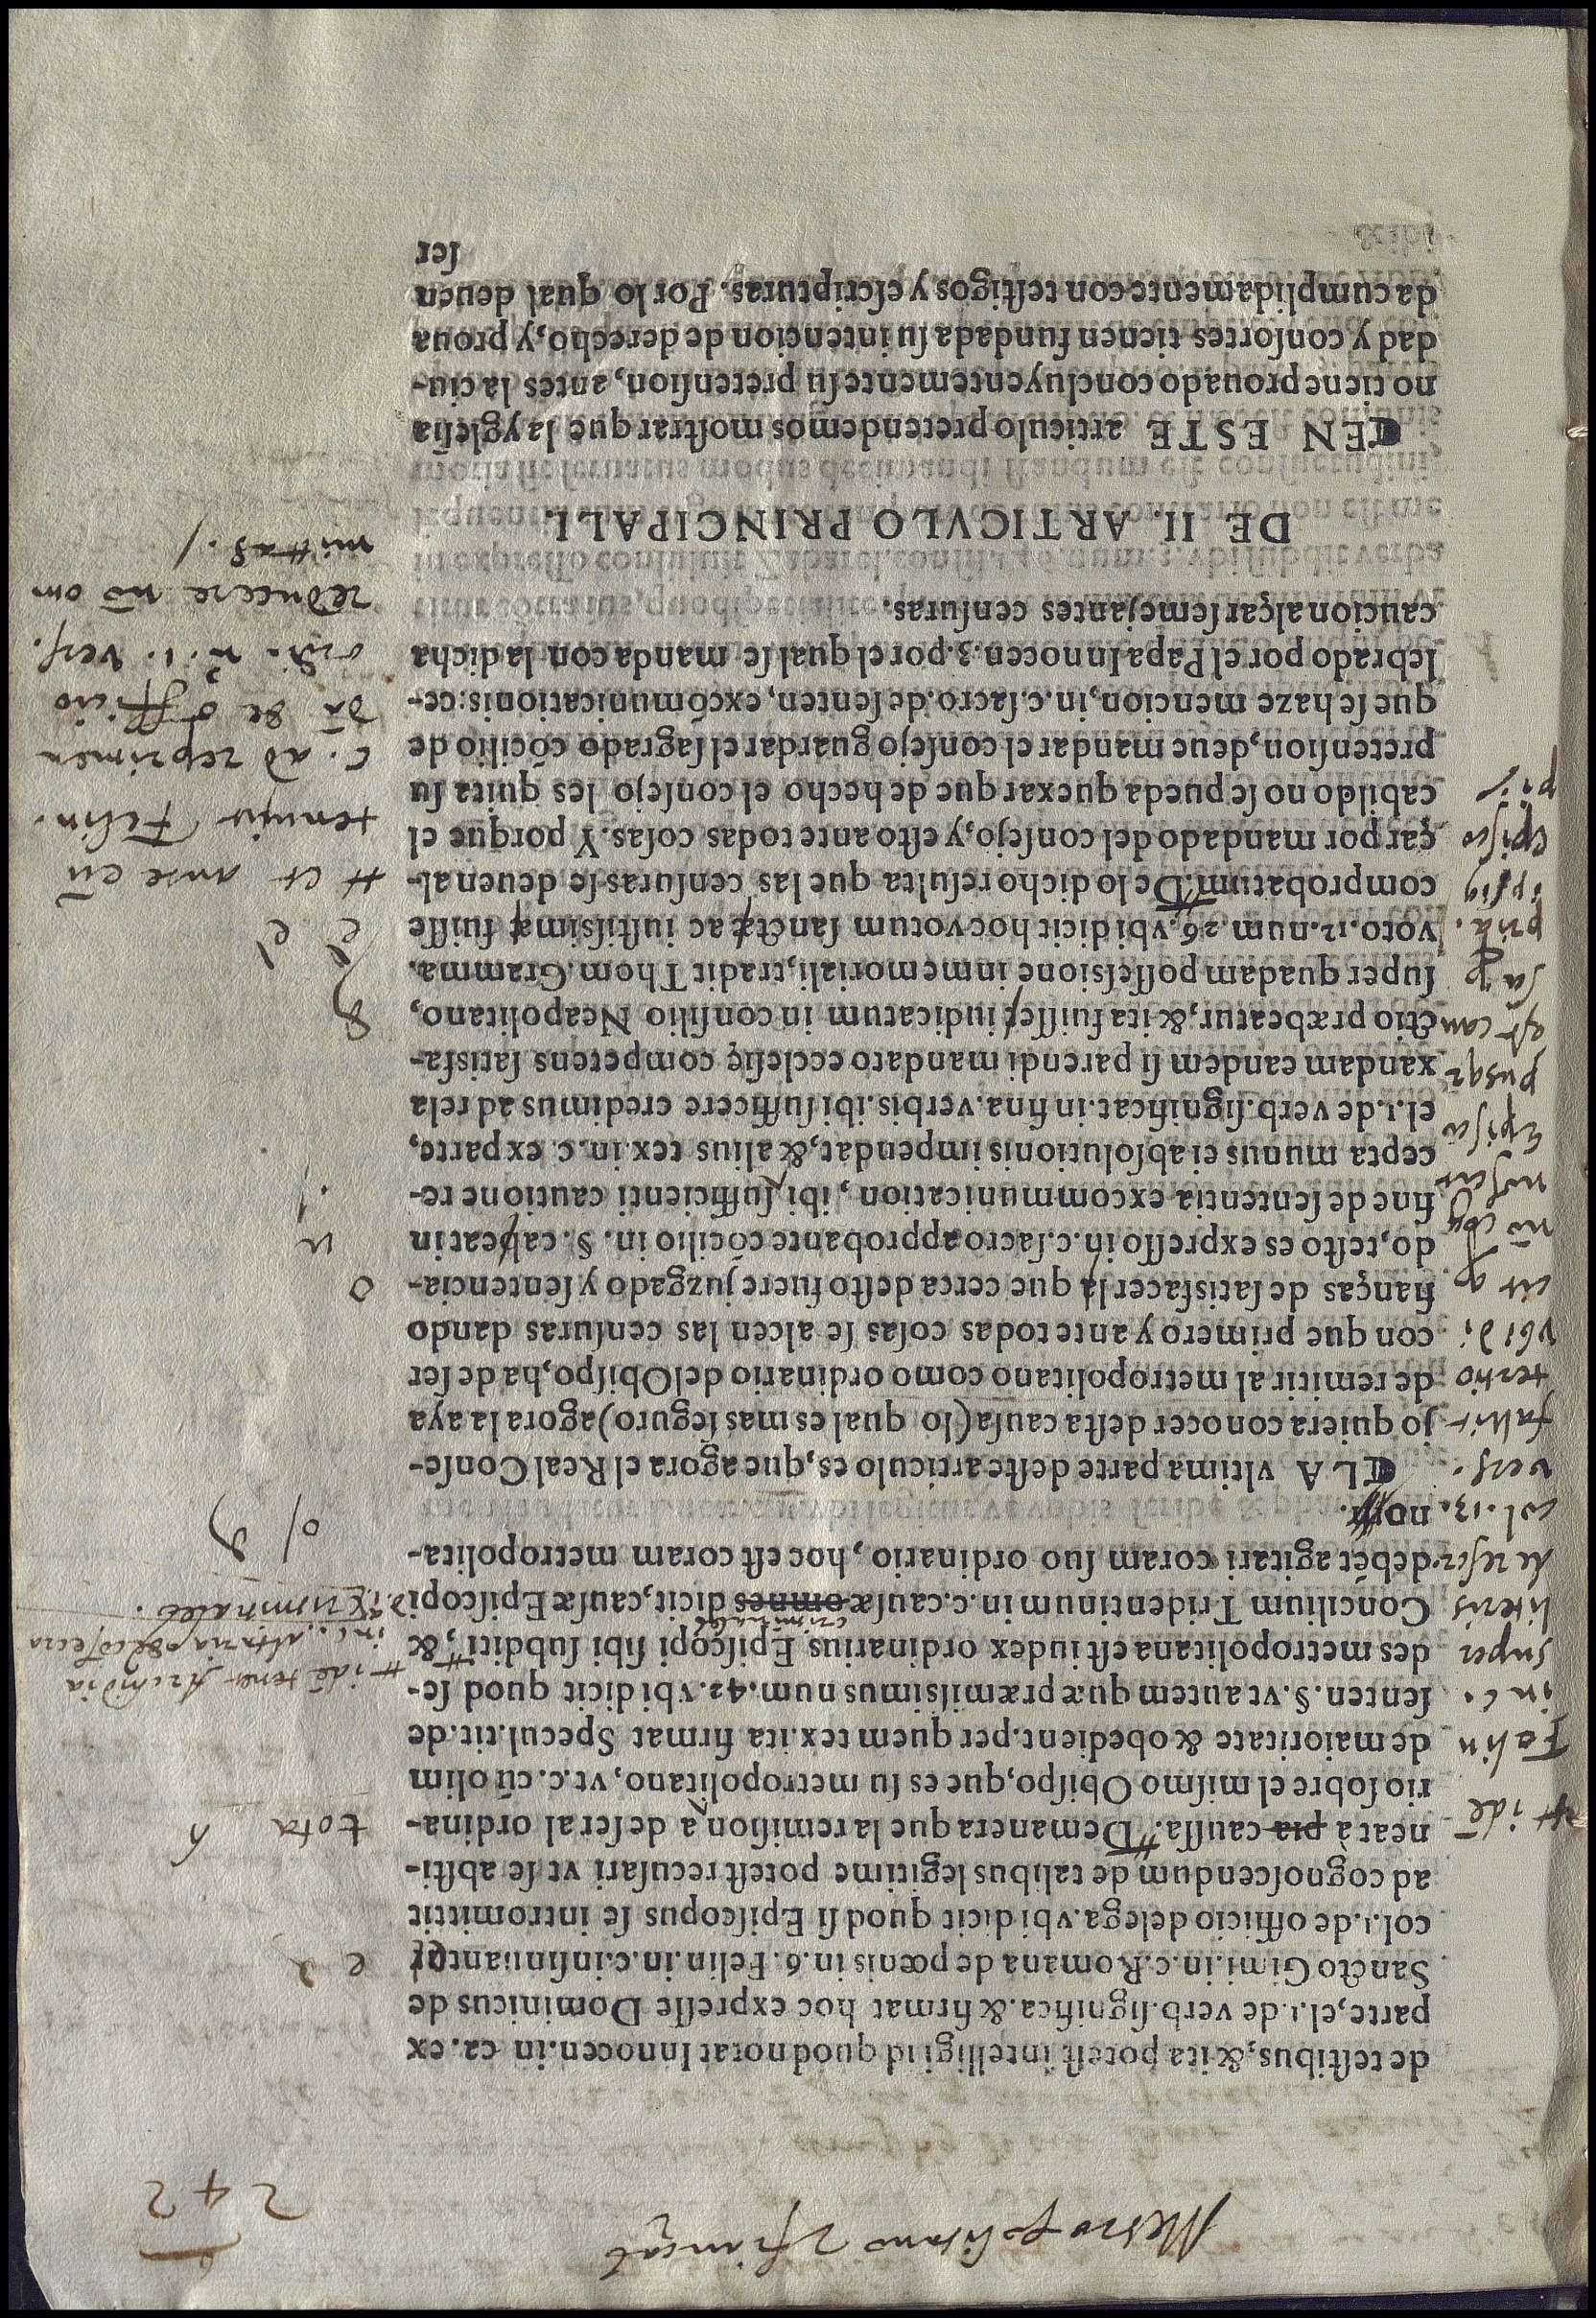 Metropolitano i fianças
242
de teſtibus, & ita poteſt intelligi id quod notat Innocen. in ca. ex
parte, el. 1. de verb. ſignifica. & firmat hoc expreſſe Dominicus de
Sancto Gimi. in. c. Romana de pœnis in. 6. Felin. in. c. inſinuante
col. 1. de officio delega. vbi dicit quod ſi Epiſcopus ſe intromittit
ad cognoſcendum de talibus legitime poteſt recuſari vt ſe abſti-
neat à pia cauſſa. De manera que la remiſion deſeral ordina-
rio ſobre el miſmo Obiſpo, que es ſu metropolitano, vt. c. cū olim
de maioritate & obedient. per quem tex. ita firmat Specul. tit. de
ſenten. §. vt autem quæ præmiſsimus num. 42. vbi dicit quod ſe-
des metropolitana eſt iudex ordinarius Epiſcopi ſibi ſubditi, &
Concilium Tridentinum in. c. cauſæ omnes dicit, cauſæ Epiſcopi
debēt agitari coram ſuo ordinario, hoc eſt coram metropolita-
no.
ℂLA vltima parte deſte articulo es, que agora el Real Conſe-
jo quiera conocer deſta cauſa (lo qual es mas ſeguro) agora la aya
de remitir al metropolitano como ordinario del Obiſpo, ha de ſer
con que primero y ante todas coſas ſe alcen las cenſuras dando
fianças de ſatisfacer la que cerca deſto fuere juzgado y ſentencia-
do, teſto es expreſſo in. c. ſacro approbante cōcilio in. §. cabeat in
fine de ſententia excommunication, ibi, ſufficienti cautione re-
cepta munus ei abſolutionis impendat, & alius tex. in. c. ex parte,
el. 1. de verb. ſignificat. in fina. verbis. ibi ſufficere credimus ad rela
xandam eandem ſi parendi mandato eccleſię competens ſatisfa-
ctio præbeatur, & ita fuiſſet iudicatum in conſilio Neapolitano,
ſuper quadam poſſeſsione in memoriali, tradit Thom. Gramma.
voto. 12. num. 26. vbi dicit hoc votum ſanctæ ac iuſtiſsimæ fuiſſe
comprobatum. De lo dicho reſulta que las cenſuras ſe deuen al-
çar por mandado del conſejo, y eſto ante todas coſas. Y porque el
cabildo no ſe pueda quexar que de hecho el conſejo les quita ſu
pretenſion, deue mandar el conſejo guardar el ſagrado cōcilio de
que ſe haze mencion, in. c. ſacro. de ſenten, excōmunicationis: ce-
lebrado por el Papa Innocen. 3. por el qual ſe manda con la dicha
caucion alçar ſemejantes cenſuras.
DE II. ARTICVLO PRINCIPALI.
ℂEN ESTE articulo pretendemos moſtrar que la ygleſia
no tiene prouado concluyentemente ſu pretenſion, antes la ciu-
dad y conſortes tienen fundada ſu intencion de derecho, y proua
da cumplidamente con teſtigos y eſcripturas. Por lo qual deuen
ſer
# idē
Felin
in c.
super
literis
de reſcr.
col. 13.
verſ.
fallit
tertio
vbi di
cit q
nō
Epiſco
epiſco
tota
criminales
# idē tenet
criminales.
o
n
# et ante cū
tenuit Felin.
c. ad reprimen
dā de officio
ordi. n. 1. verſ.
reducere nō om
mittas.